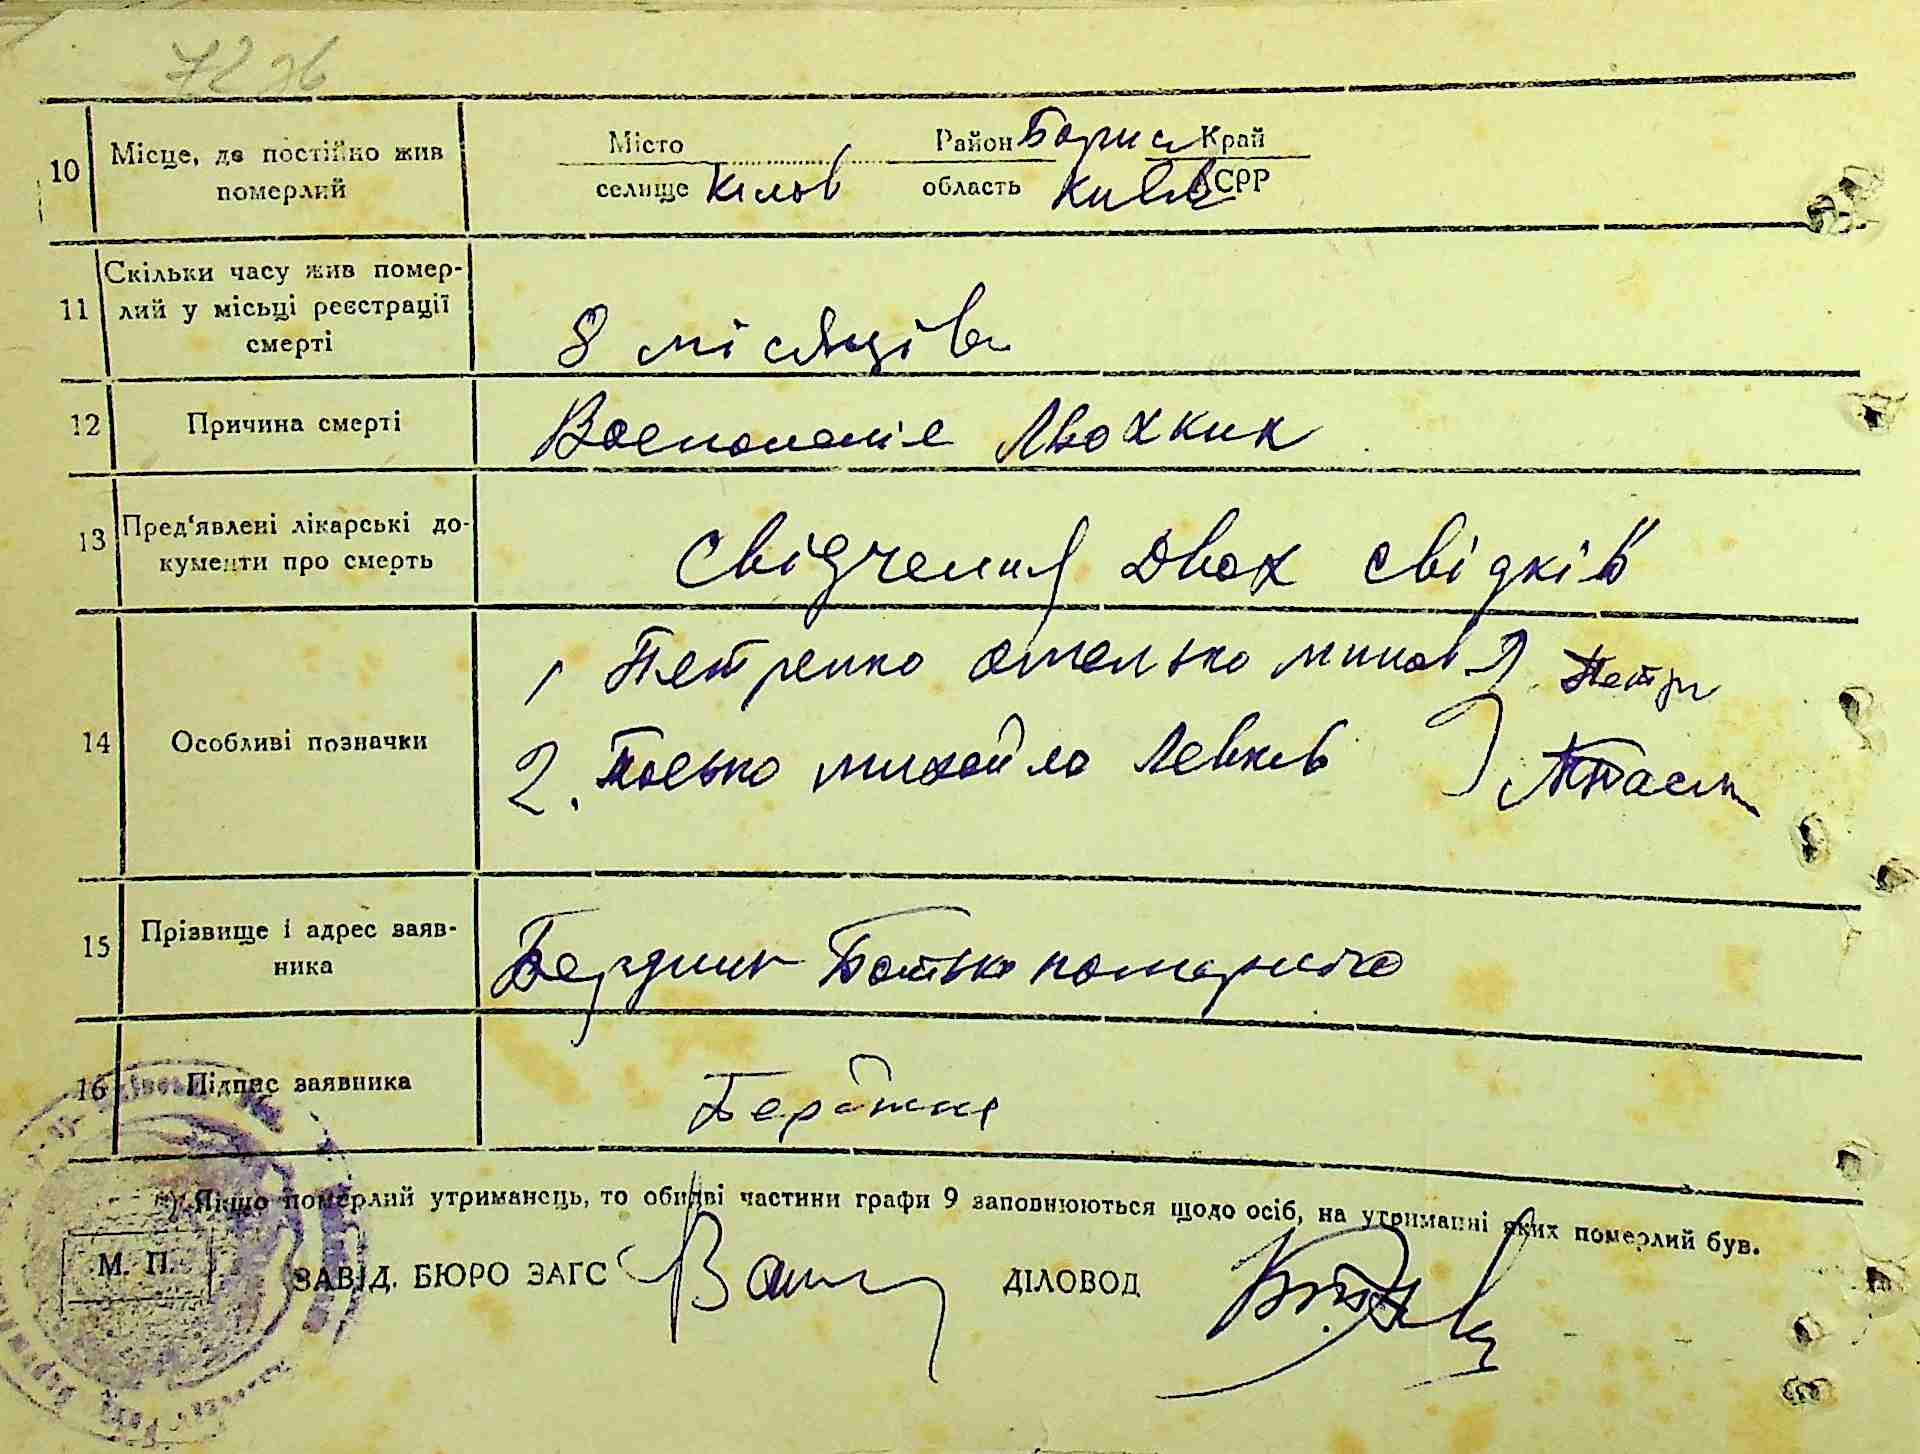 72 зв
10 Місце, де постійно жив померлий
Місто Район Борис Край
селище Кілов область Київ АСРР
11 Скільки часу жив помер-
лий у місьці реєстрації
смерті
8 місяців
12 Причина смерті
Воспоменіє Льохких
13 Пред'явлені лікарські до-
кументи про смерть
Свідчення двох свідків
14 Особливі позначки
1 Петренко омелько минов Петрн
2. михайло Левков
15 Прізвище і адрес заяв-
ника
Бердник Батько помершого
16 Підпис заявника
*) Якщо померлий утриманець, то обидві частини графи 9 заповнюються щодо осіб, на утриманні яких померлий був.
М. П.
ЗАВІД. БЮРО ЗАГС ДІЛОВОД